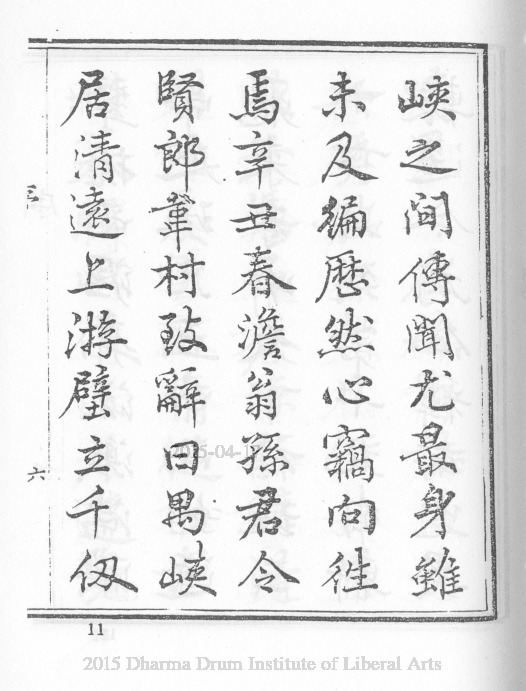 峽之間傳聞尤最身雖
未及徧歷然心竊向往
焉辛丑春澹翁孫君令
賢郎葦村致辭曰禺峽
居清遠上游壁立千仭
六
11
2015 Dharma Drum Institute of Liberal Arts